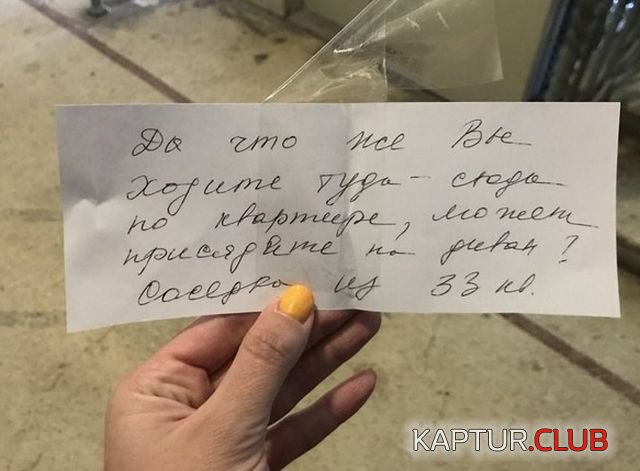 Да что же Вы
ходите туда-сюда
по квартире, может
присядите на диван?
Соседка из 33 кв.
KAPTUR.CLUB